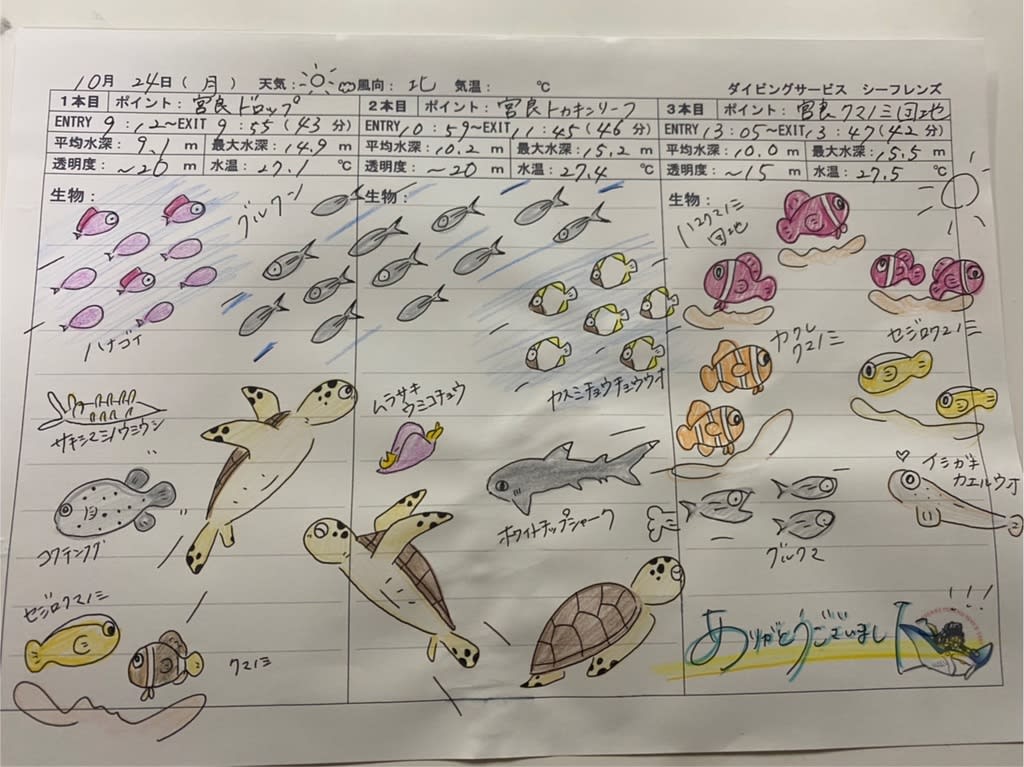 10月 24日(月) 天気: 風向: 北 気温: ℃
ダイビングサービス シーフレンズ
1本目 ポイント: 宮良ドロップ
ENTRY 9:12～EXIT 9:55(43分)
平均水深: 9.1 m 最大水深: 14.9 m
透明度: ～20 m 水温: 27.1 ℃
生物:
グルクン
ハナゴイ
サキシマミノウミウシ
コクテンフグ
セジロクマノミ
クマノミ
2本目 ポイント: 宮良トカキンリーフ
ENTRY 10:59～EXIT 11:45(46分)
平均水深: 10.2 m 最大水深: 15.2 m
透明度: ～20 m 水温: 27.4 ℃
生物:
カスミチョウチョウウオ
ムラサキ
ウミコチョウ
ホワイトチップシャーク
3本目 ポイント: 宮良クマノミ団地
ENTRY 13:05～EXIT 13:47(42分)
平均水深: 10.0 m 最大水深: 15.5 m
透明度: ～15 m 水温: 27.5 ℃
生物:
ハマクマノミ
団地
カクレ
クマノミ
セジロクマノミ
イシガキ
カエルウオ
グルクマ
ありがとうございまし
!!!